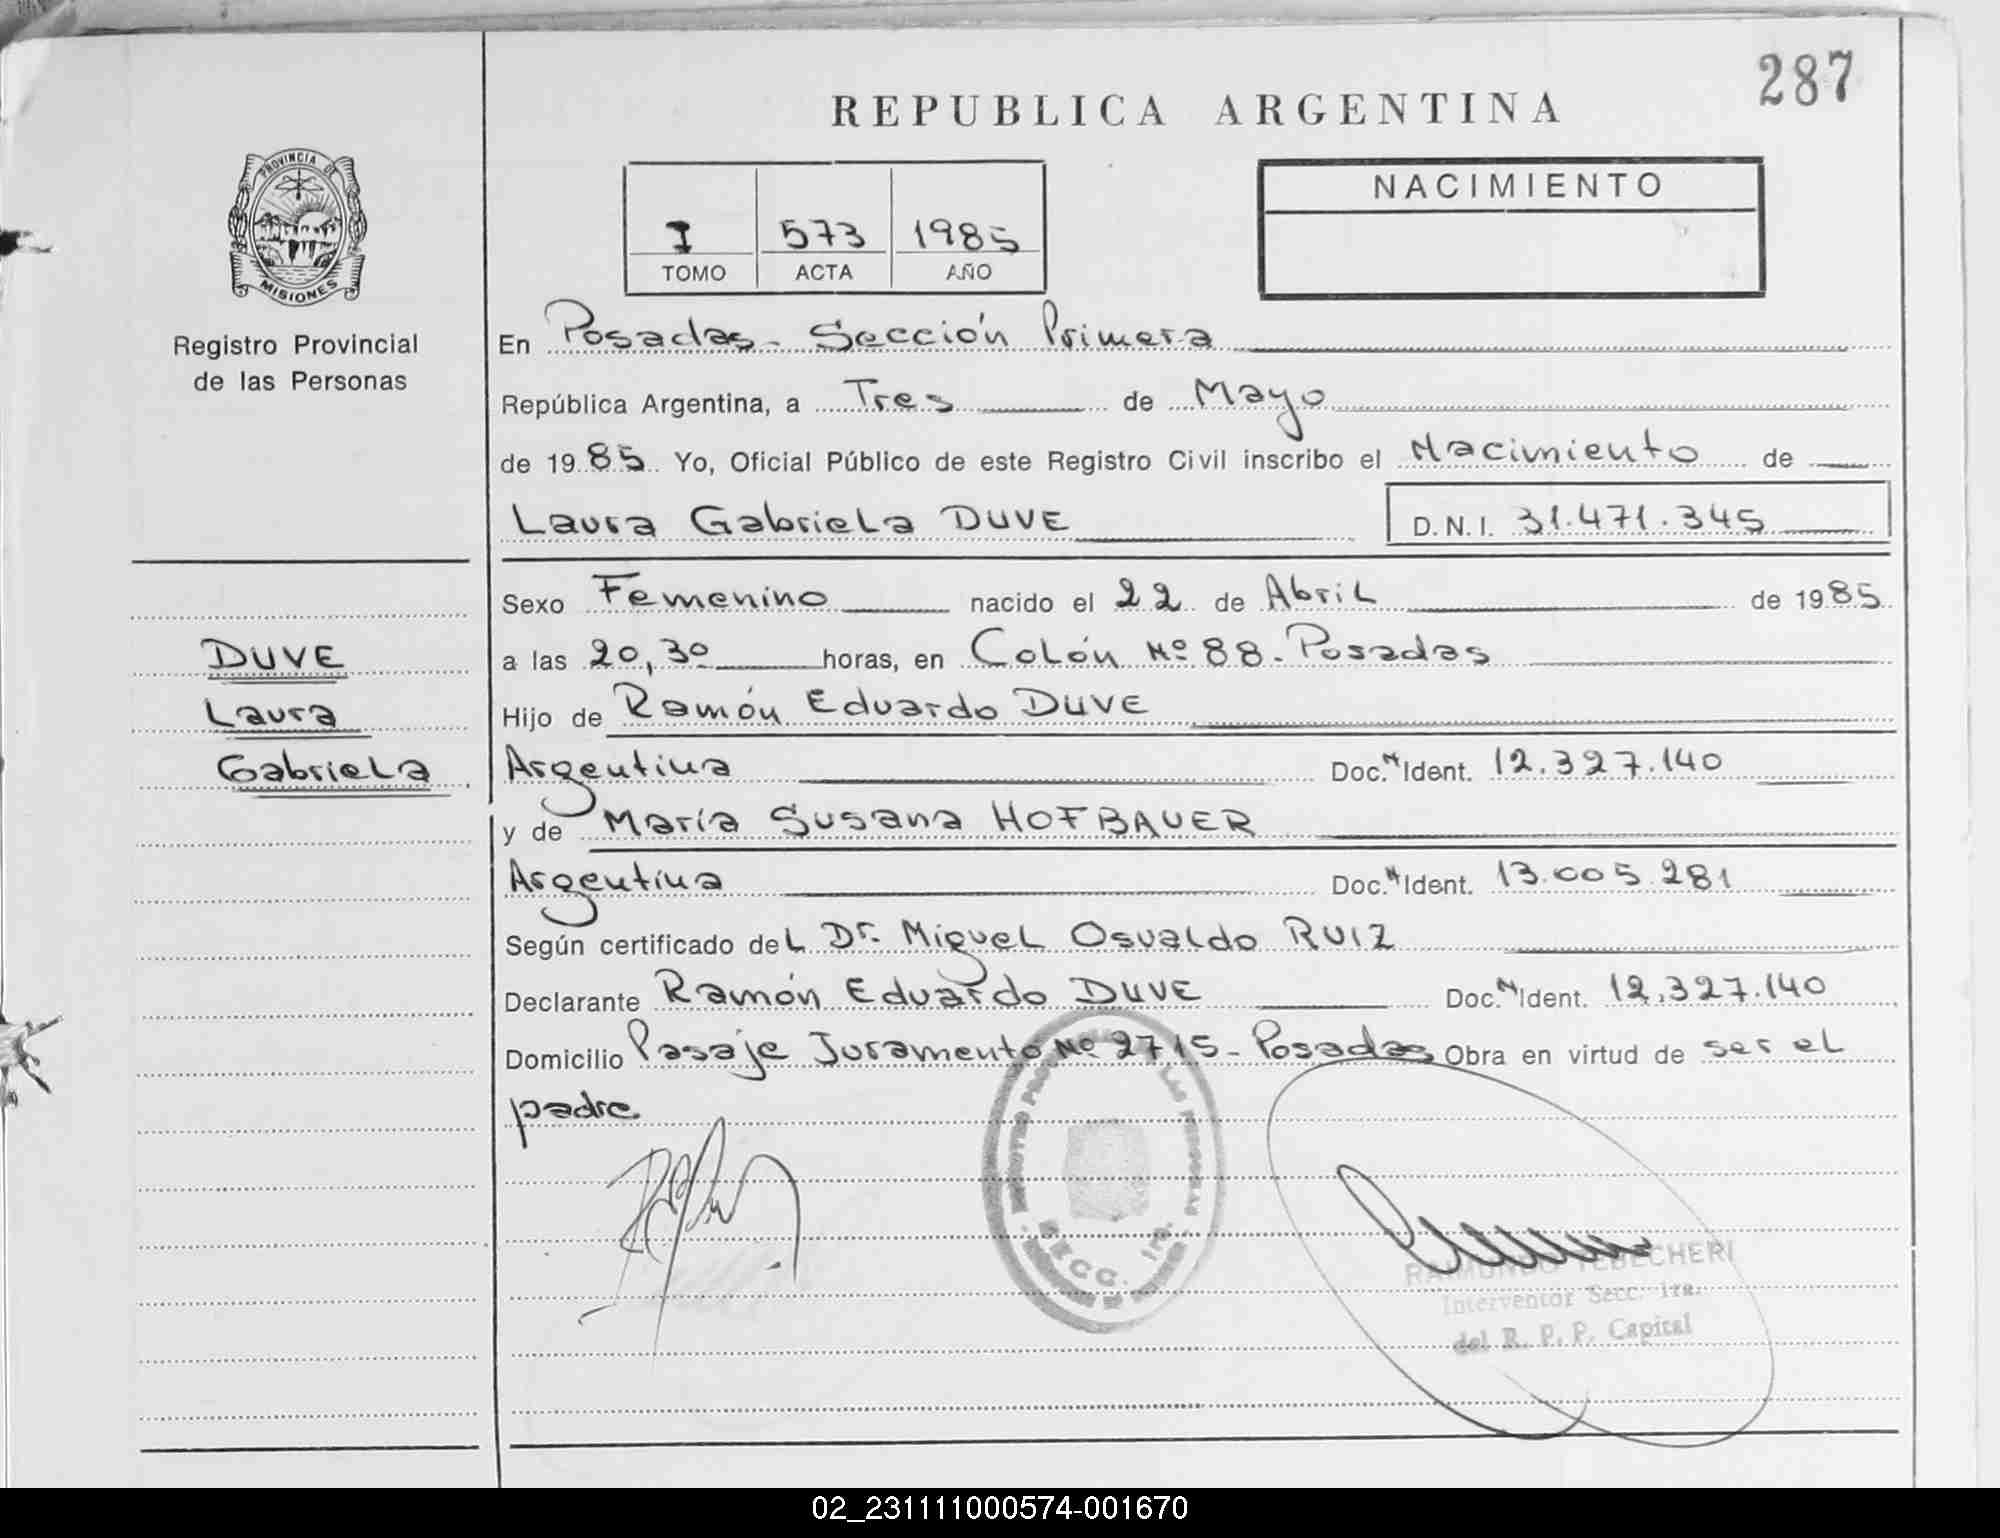 287
REPUBLICA ARGENTINA
PROVINCIA DE
MISIONES
Registro Provincial
de las Personas
I 573 1985
TOMO ACTA AÑO
NACIMIENTO
En Posadas - Sección Primera
República Argentina, a Tres de Mayo
de 1985 Yo, Oficial Público de este Registro Civil inscribo el Nacimiento de
Laura Gabriela DUVE D.N.I. 31.471.345
Sexo Femenino nacido el 22 de Abril de 1985
DUVE
Laura
Gabriela
a las 20,30 horas, en Colón Nº 88 - Posadas
Hijo de Ramón Eduardo DUVE
Argentina Doc. N Ident. 12.327.140
y de María Susana HOFBAUER
Argentina Doc. N Ident. 13.005.281
Según certificado del Dr. Miguel Osvaldo RUIZ
Declarante Ramón Eduardo DUVE Doc. N Ident. 12.327.140
Domicilio Pasaje Juramento Nº 2715 - Posadas Obra en virtud de ser el
padre
LAS PERSONAS
SECC. 1ra.
Interventor Secc. 1ra.
del R. P. P. Capital
02_231111000574-001670